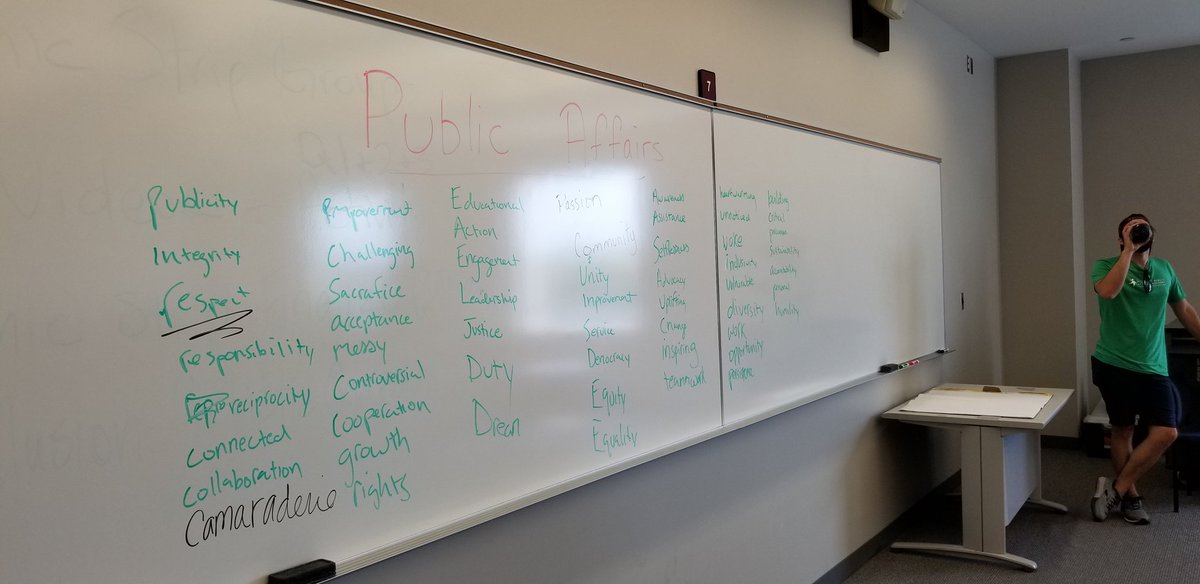 Public Affairs
Publicity
Integrity
respect
responsibility
reciprocity
connected
collaboration
Camaraderie
Empowerment
Challenging
Sacrafice
acceptance
messy
Controversial
cooperation
growth
rights
Educational
Action
Engagement
Leadership
Justice
Duty
Dream
Passion
Community
Unity
Improvement
Service
Democracy
Equity
Equality
Awareness
Assistance
Selflessness
Advocacy
Uplifting
Change
inspiring
teamwork
heartwarming
unnoticed
woke
inclusivity
vulnerable
diversity
work
opportunity
persistence
building
critical
Sustainability
accessibility
humility
7